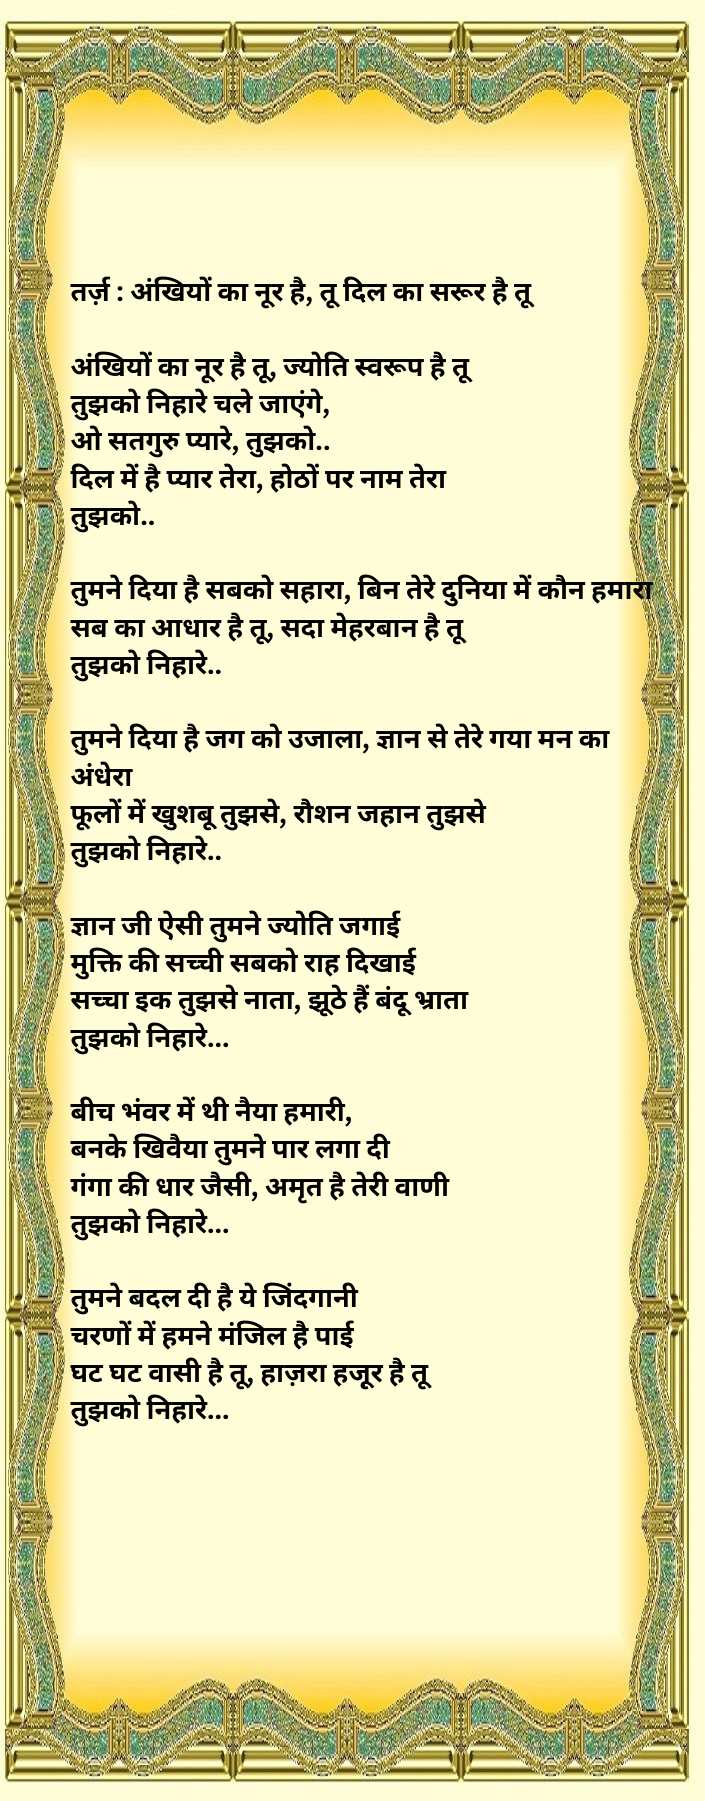 तर्ज़ : अंखियों का नूर है, तू दिल का सरूर है तू
अंखियों का नूर है तू, ज्योति स्वरूप है तू
तुझको निहारे चले जाएंगे,
ओ सतगुरु प्यारे, तुझको..
दिल में है प्यार तेरा, होठों पर नाम तेरा
तुझको..
तुमने दिया है सबको सहारा, बिन तेरे दुनिया में कौन हमारा
सब का आधार है तू, सदा मेहरबान है तू
तुझको निहारे..
तुमने दिया है जग को उजाला, ज्ञान से तेरे गया मन का
अंधेरा
फूलों में खुशबू तुझसे, रौशन जहान तुझसे
तुझको निहारे..
ज्ञान जी ऐसी तुमने ज्योति जगाई
मुक्ति की सच्ची सबको राह दिखाई
सच्चा इक तुझसे नाता, झूठे हैं बंदू भ्राता
तुझको निहारे...
बीच भंवर में थी नैया हमारी,
बनके खिवैया तुमने पार लगा दी
गंगा की धार जैसी, अमृत है तेरी वाणी
तुझको निहारे...
तुमने बदल दी है ये जिंदगानी
चरणों में हमने मंजिल है पाई
घट घट वासी है तू, हाज़रा हजूर है तू
तुझको निहारे...